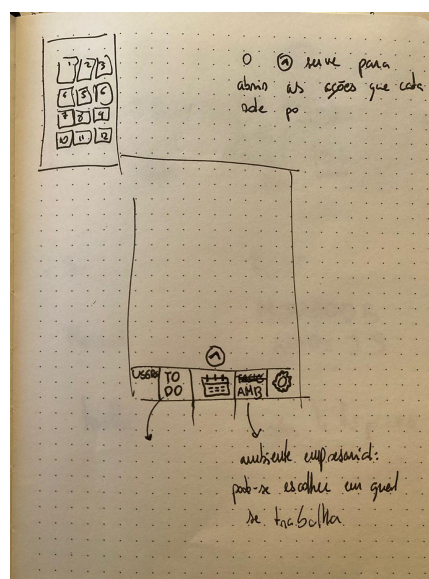 1 2 3
4 5 6
7 8 9
10 11 12
O serve para
abrir as ações que cada
pode
USERS
TO
DO
AMB
ambiente empresarial:
pode-se escolher em qual
se trabalha